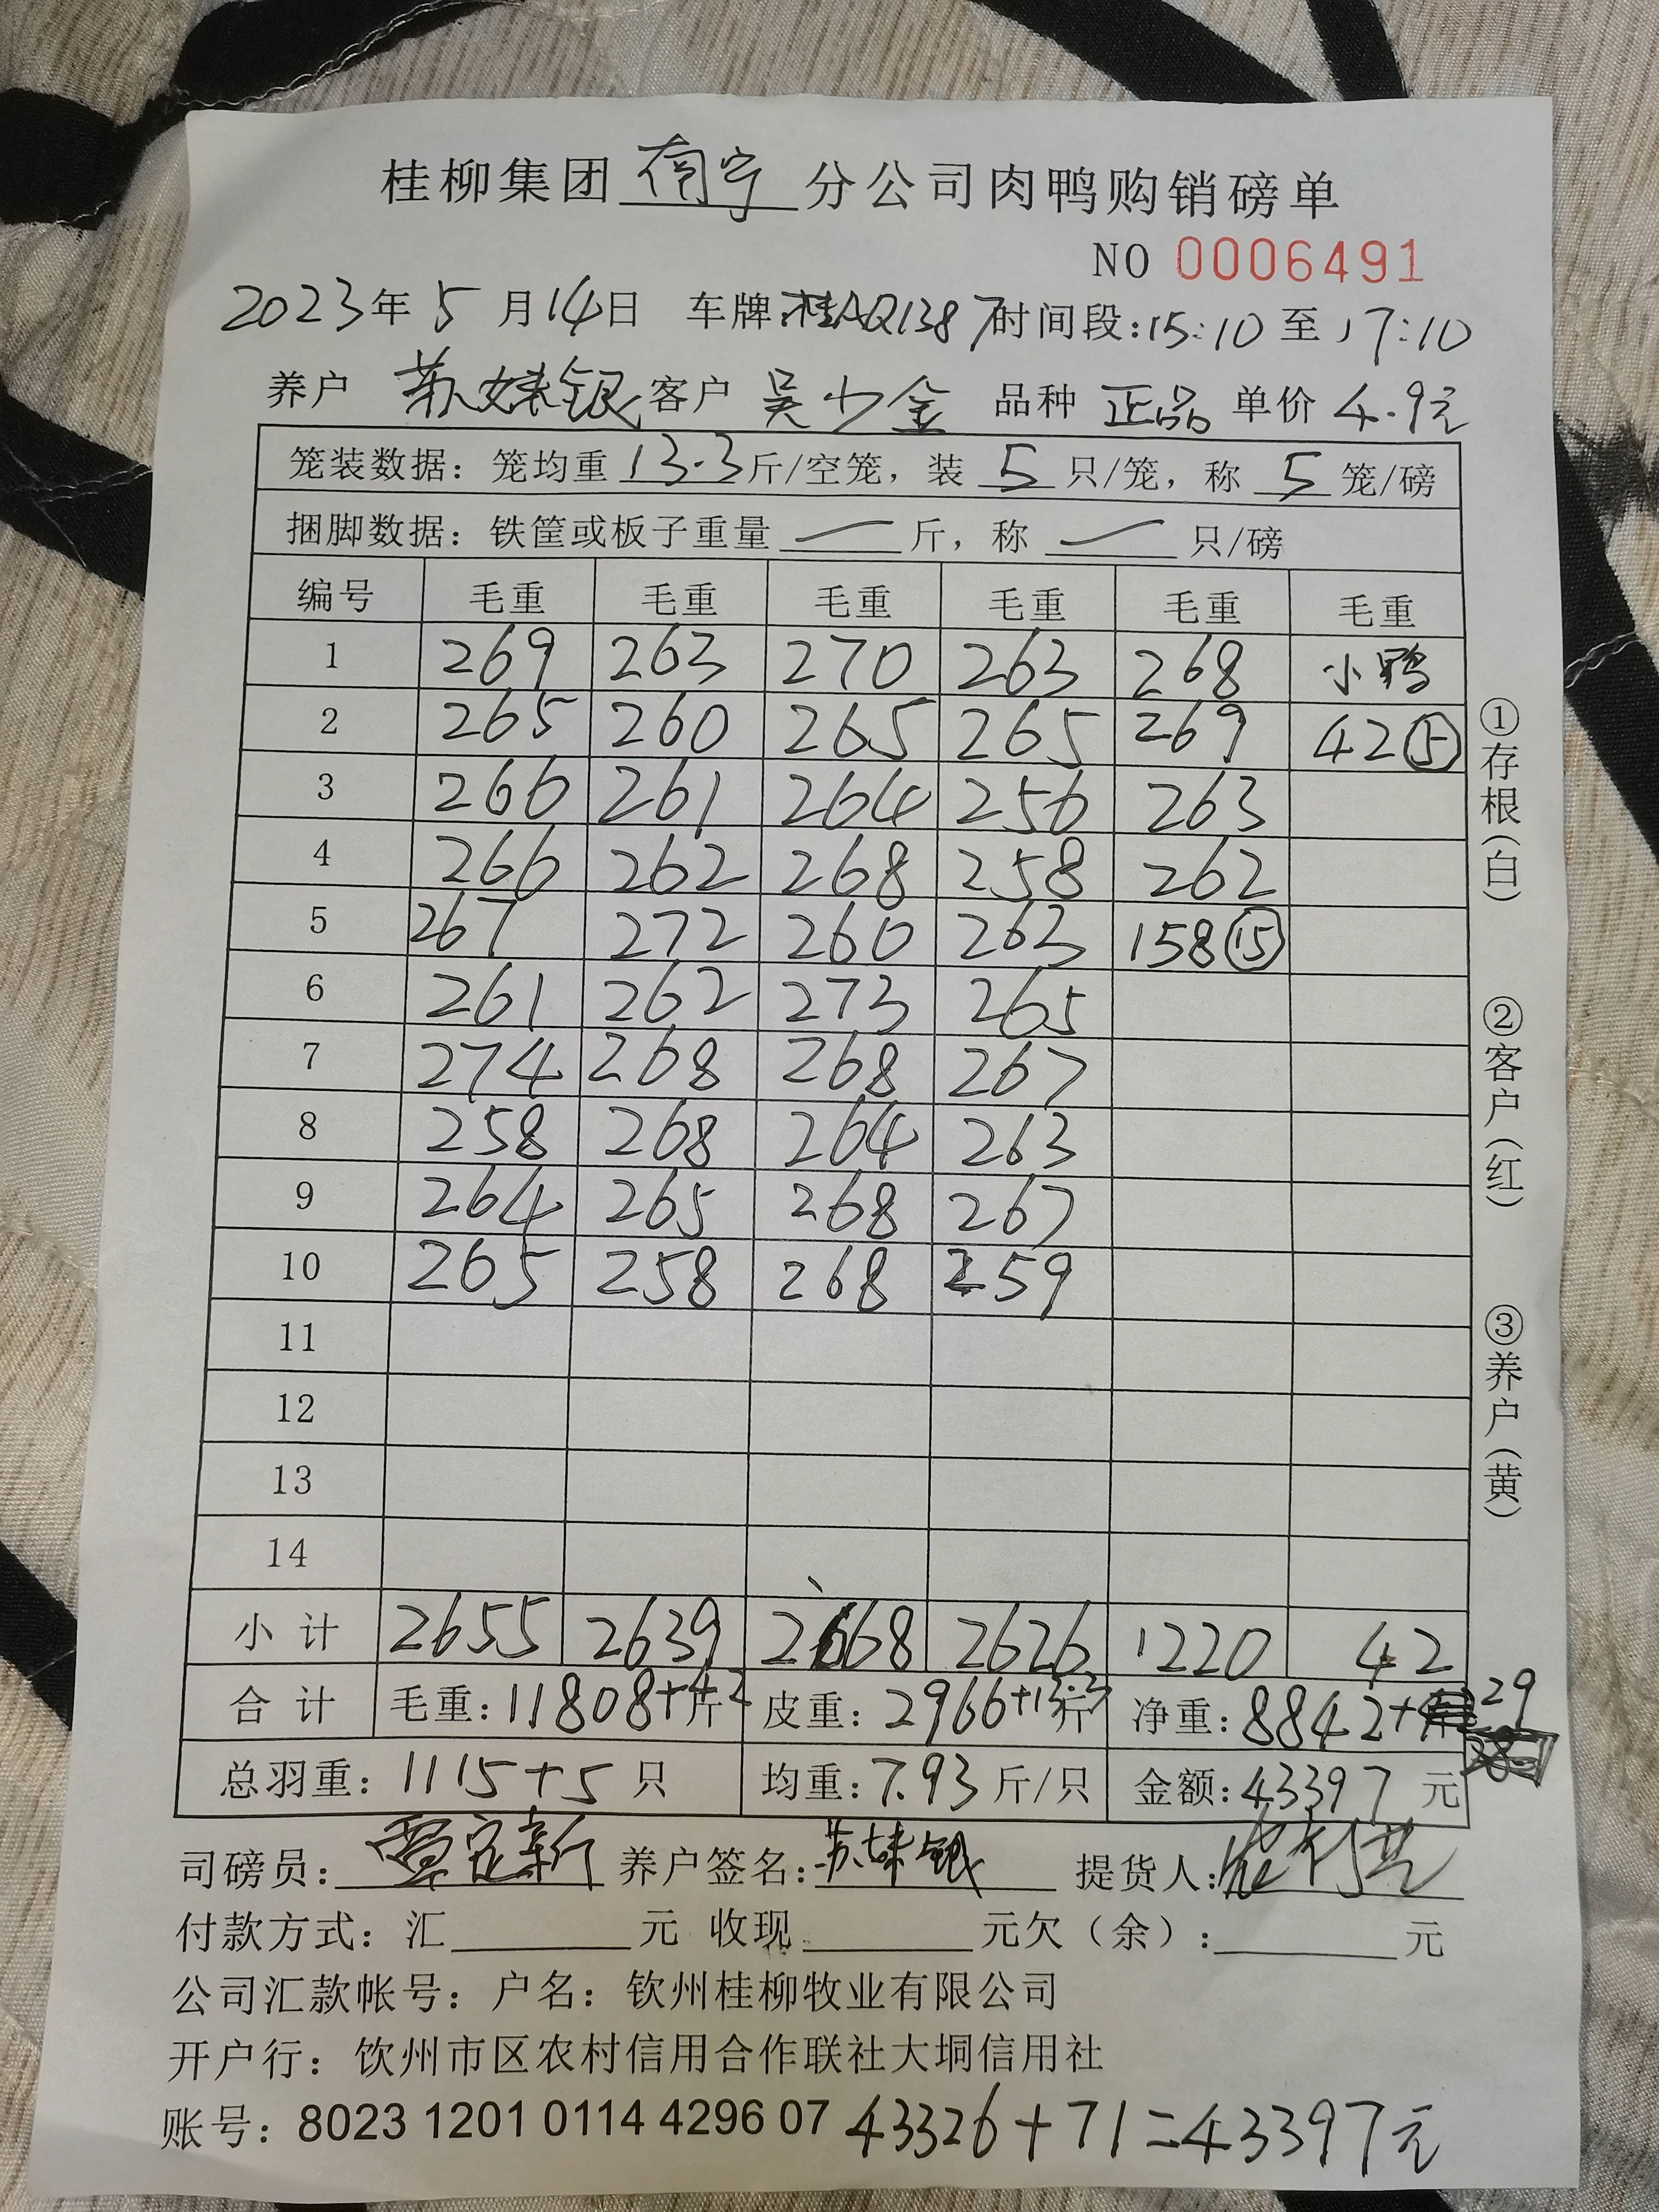 桂柳集团南宁分公司肉鸭购销磅单
NO 0006491
2023年5月14日 车牌:桂AQ1387时间段:15:10至17:10
养户 苏妹银 客户 吴少金 品种 正品 单价 4.9元
笼装数据：笼均重13.3斤/空笼，装5只/笼，称5笼/磅
捆脚数据：铁筐或板子重量 — 斤，称 — 只/磅
编号 毛重 毛重 毛重 毛重 毛重 毛重
1 269 263 270 263 268 小鸭
2 265 260 265 265 269 42⑤
3 266 261 264 256 263
4 266 262 268 258 262
5 267 272 260 262 158⑮
6 261 262 273 265
7 274 268 268 267
8 258 268 264 263
9 264 265 268 267
10 265 258 268 259
11
12
13
14
小计 2655 2639 2668 2626 1220 42
合计 毛重：11808+42斤 皮重：2966+13.3斤 净重：8842+29
总羽重：1115+5只 均重：7.93斤/只 金额：43397元
司磅员：覃定新 养户签名：苏妹银 提货人：
付款方式：汇 元 收现 元欠（余）： 元
公司汇款帐号：户名：钦州桂柳牧业有限公司
开户行：饮州市区农村信用合作联社大垌信用社
账号：8023 1201 0114 4296 07 43326+71=43397元
①存根（白）
②客户（红）
③养户（黄）